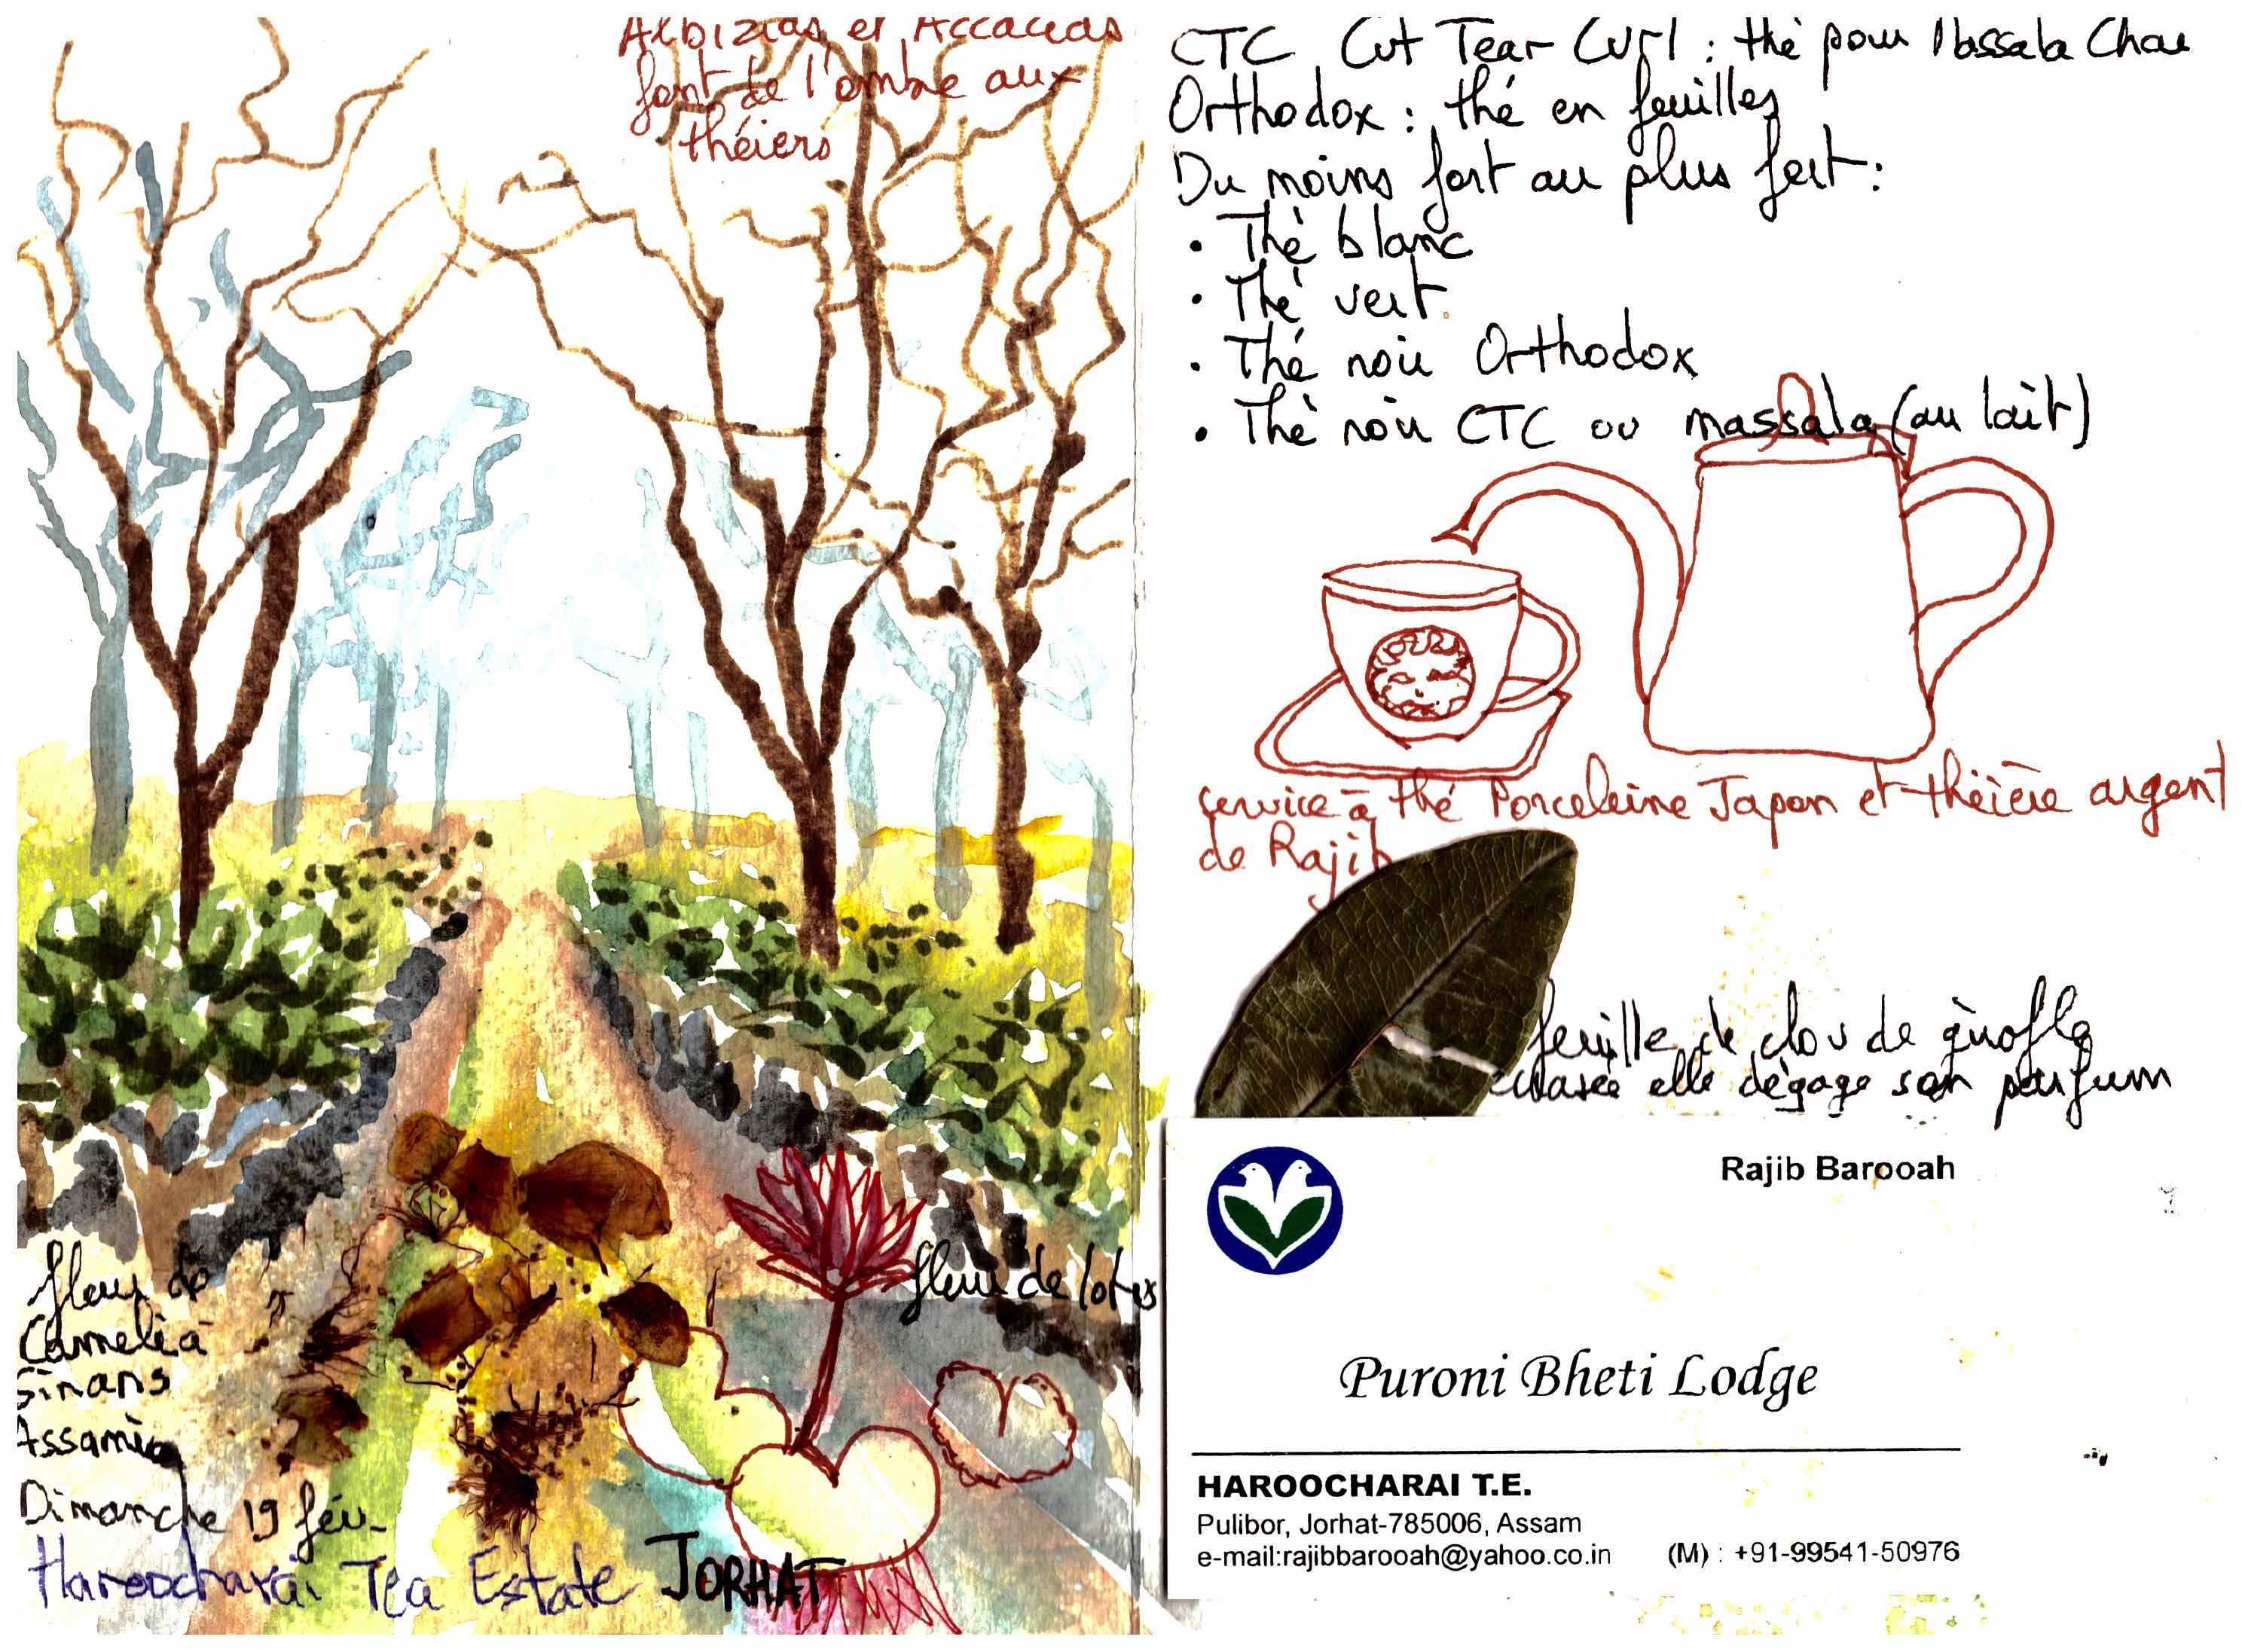 Albizias et Accacias
font de l'ombre aux
théiers
fleur de
Camelia
Sinans
Assamica
fleur de lotus
Dimanche 19 fév.
Haroocharai Tea Estate JORHAT
CTC Cut Tear Curl : thé pour Massala Chai
Orthodox : thé en feuilles
Du moins fort au plus fort :
• Thé blanc
• Thé vert
• Thé noir Orthodox
• Thé noir CTC ou massala (au lait)
service à thé Porceleine Japon et théière argent
de Rajib
feuille de clou de girofle
écrasée elle dégage son parfum
Rajib Barooah
Puroni Bheti Lodge
HAROOCHARAI T.E.
Pulibor, Jorhat-785006, Assam
e-mail:rajibbarooah@yahoo.co.in (M) : +91-99541-50976